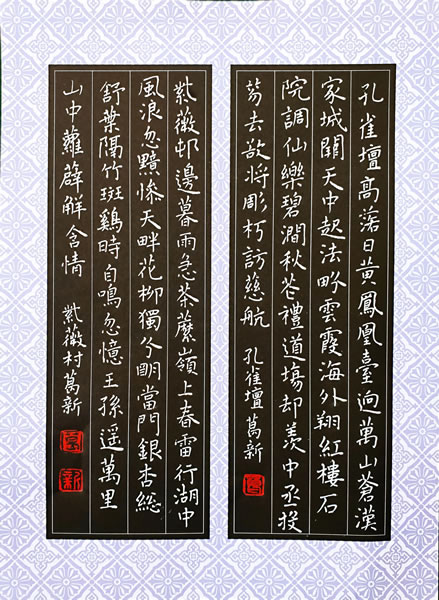 孔雀壇高落日黄鳳凰臺迥萬山蒼漢
家城闕天中起法界雲霞海外翔紅樓石
院調仙樂碧澗秋禮道場却羡中丞投
去欲将彫朽訪慈航 孔雀壇葛新
紫薇邨邊暮雨急荼蘼嶺上春雷行湖中
風浪忽黯慘天畔花柳獨分明當門銀杏総
舒葉隔竹斑鷄時自鳴忽憶王孫遥萬里
山中蘿薜解含情 紫薇村葛新
新